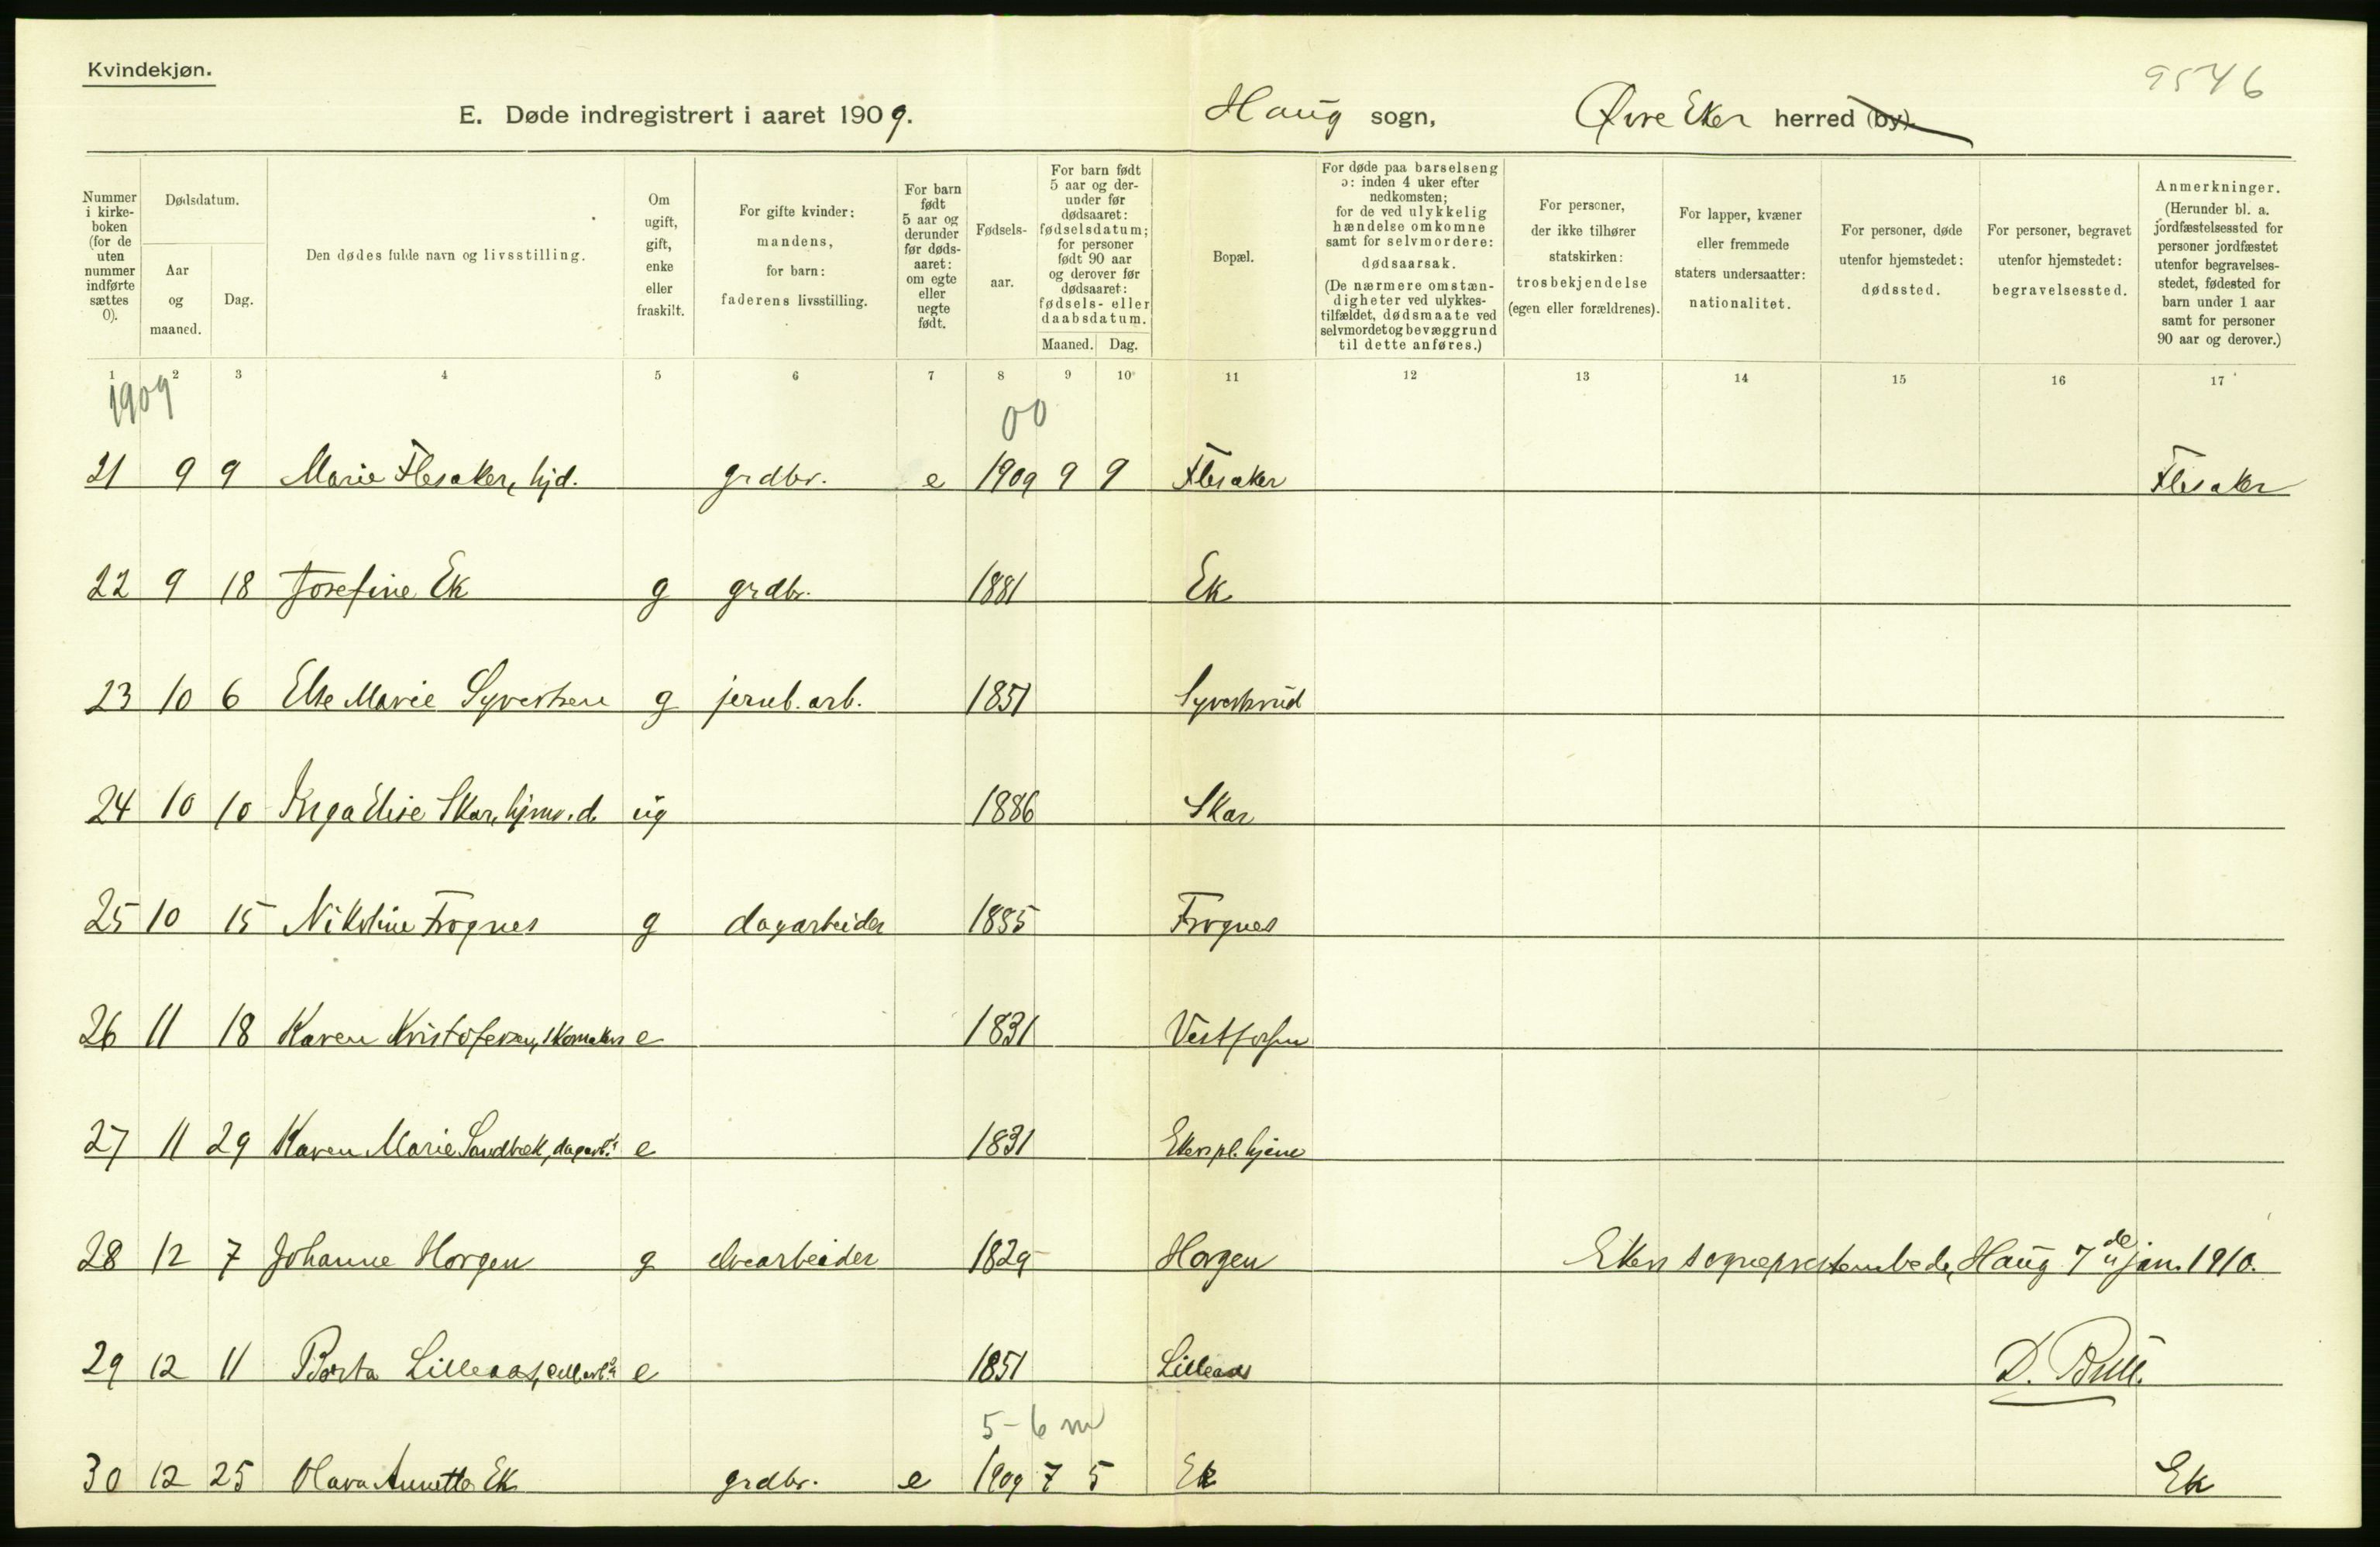 Kvindekjøn.
9546
E. Døde indregistrert i aaret 1909. Haug sogn, Øvre Eker herred (by).
Nummer i kirke- boken (for de uten nummer indførte sættes 0).
Dødsdatum.
Aar og maaned.
Dag.
Den dødes fulde navn og livsstilling.
Om ugift, gift, enke eller fraskilt.
For gifte kvinder: mandens, for barn: faderens livsstilling.
For barn født 5 aar og derunder før døds- aaret: om egte eller uegte født.
Fødsels- aar.
For barn født 5 aar og der- under før dødsaaret: fødselsdatum; for personer født 90 aar og derover før dødsaaret: fødsels- eller daabsdatum.
Maaned. Dag.
Bopæl.
For døde paa barselseng ɔ: inden 4 uker efter nedkomsten; for de ved ulykkelig hændelse omkomne samt for selvmordere: dødsaarsak. (De nærmere omstæn- digheter ved ulykkes- tilfældet, dødsmaate ved selvmordet og bevæggrund til dette anføres.)
For personer, der ikke tilhører statskirken: trosbekjendelse (egen eller forældrenes).
For lapper, kvæner eller fremmede staters undersaatter: nationalitet.
For personer, døde utenfor hjemstedet: dødssted.
For personer, begravet utenfor hjemstedet: begravelsessted.
Anmerkninger. (Herunder bl. a. jordfæstelsessted for personer jordfæstet utenfor begravelses- stedet, fødested for barn under 1 aar samt for personer 90 aar og derover.)
1 2 3 4 5 6 7 8 9 10 11 12 13 14 15 16 17
1909
00
21 9 9 Marie Flesaker, hjd. grdbr. e 1909 9 9 Flesaker Flesaker
22 9 18 Josefine Ek g grdbr. 1881 Ek
23 10 6 Else Marie Syvertsen g jernb. arb. 1851 Syverhrud
24 10 10 Inga Elise Skar, hjmv. d. ug 1886 Skar
25 10 15 Nikoline Frognes g dagarbeider 1885 Frognes
26 11 18 Karen Kristofersen, skomakers e 1831 Vestfossen
27 11 29 Karen Marie Sandbæk, dagarb.s e 1831 Ekers pl. hjem
28 12 7 Johanne Horgen g elvearbeider 1829 Horgen Ekers sogneprestembede, Haug 7de jan. 1910.
29 12 11 Berta Lilleaas, e 1851 Lilleaas D. Bull.
5-6 m
30 12 25 Olava Annette Ek grdbr. e 1909 7 5 Ek Ek